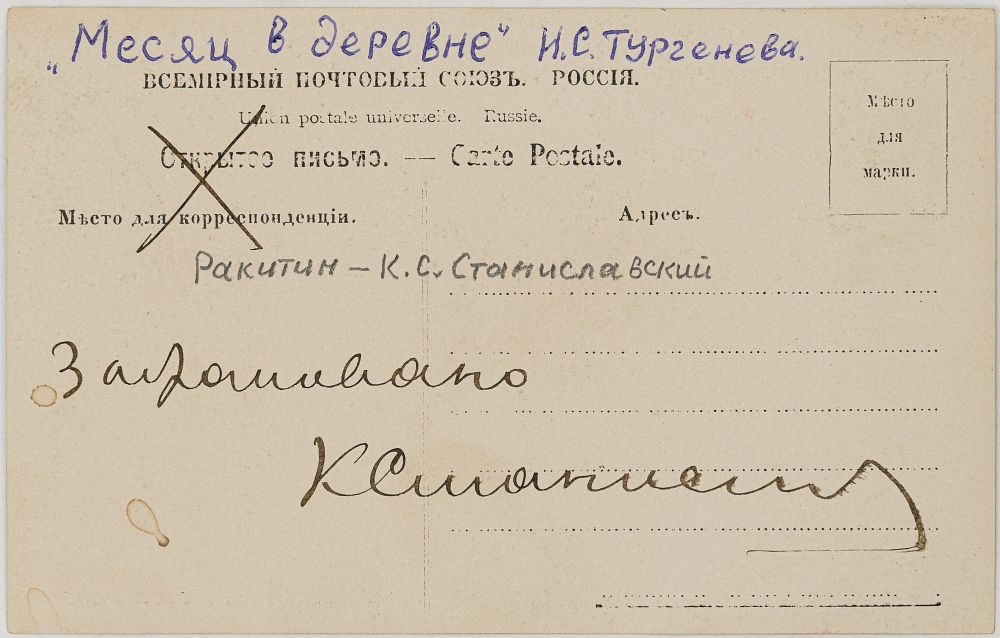 „Месяц в деревне" И.С. Тургенева.
ВСЕМІРНЫЙ ПОЧТОВЫЙ СОЮЗЪ. РОССІЯ.
Union postale universelle. Russie.
Открытое письмо. — Carte Postale.
Мѣсто
для
марки.
Мѣсто для корреспонденціи.
Адресъ.
Ракитин – К.С. Станиславский
КСтанисл